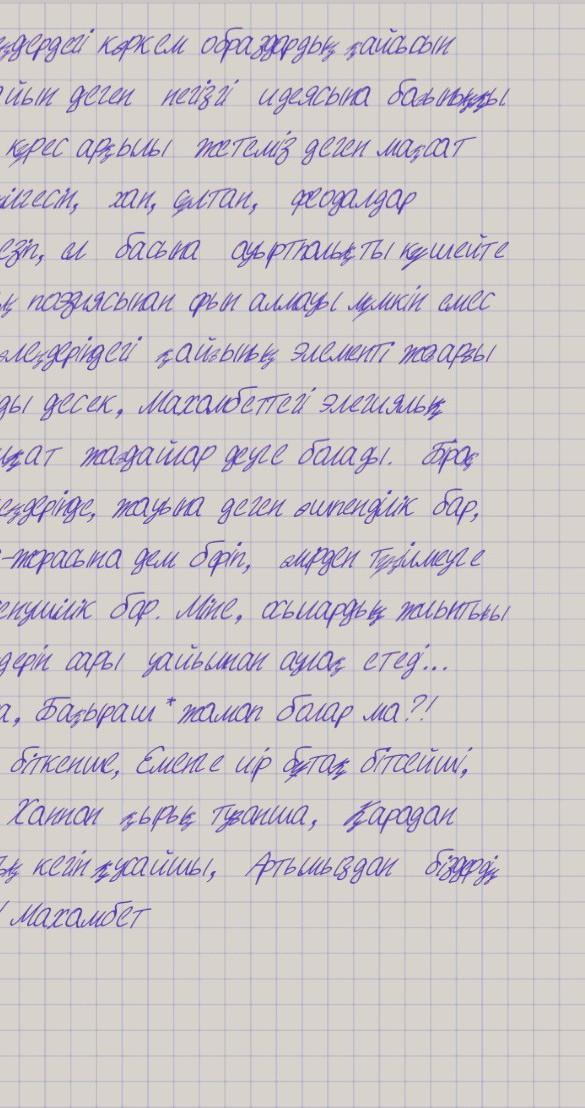 здердегі көркем образдардың қайсысын
йын деген негізгі идеясына бағынышты
күрес арқылы жетеміз деген мақсат
ілгесін, хан, сұлтан, феодалдар
езіп, ел басына ауыртпалықты күшейте
ң поэзиясынан орын алмауы мүмкін емес
өлеңдеріндегі қайғының элементі жоғарғы
ды десек, Махамбеттегі элегиялық
иқат жағдайлар деуге болады. Бірақ
еңдерінде, жауына деген өшпенділік бар,
-жорасына дем беріп, өмірден түңілмеуге
енушілік бар. Міне, осылардың жиынтығы
дерін сары уайымнан аулақ етеді...
а, Бақыраш * жамап болар ма?!
біткенше, Еменге иір бұтақ бітсейші,
Ханнан қырық туғанша, Қарадан
ың кегін қусайшы, Артымыздан біздердің
Махамбет